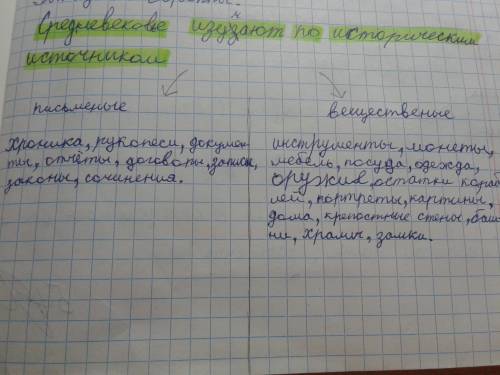 Средневековье изучают по историческим
источником
письменые
вещественые
хроника, рукопеси, докумен-
ты, отчёты, договоты, записи,
законы, сочинения.
инструменты, монеты,
мебель, посуда, одежда,
оружия, остатки кораб
лей, портреты, картины,
дома, крепостные стены, баш
ни, храмы, замки.